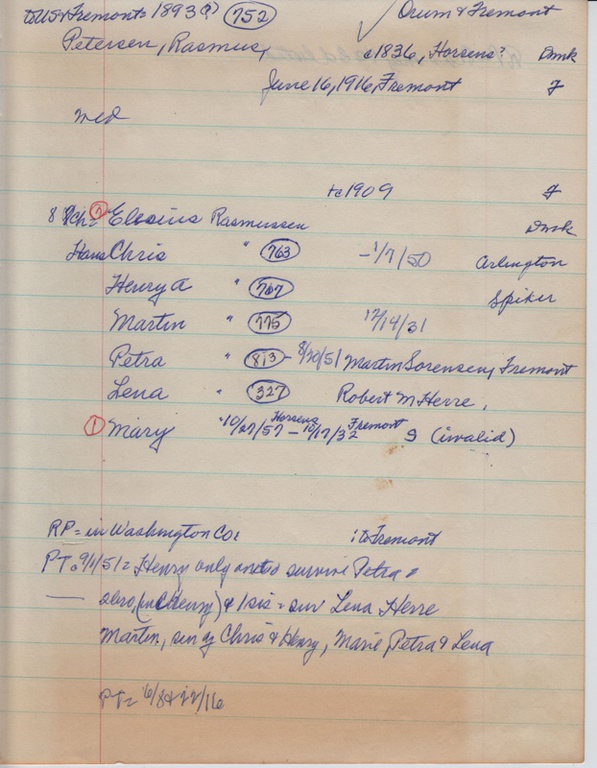 to US & Fremont 1893(?) 752 ✓ Orum & Fremont
Petersen, Rasmus, c1836, Horsens? Dmk
June 16, 1916, Fremont F
med
to 1909 F
8 ch= Rasmussen Dmk
Hans Chris " 763 -1/7/50 Arlington
Henry A " 767 Spiker
Martin " 775 12/14/31
Petra " 813 - 8/30/51 Martin Sorensen, Fremont
Lena " 327 Robert M Herre,
① Mary 10/27/57 Horsens - 10/17/32 Fremont S (invalid)
RP = in Washington Co: : to Fremont
PT = 9/1/51 = Henry only to survive Petra =
— & 1 sis = sur Lena Herre
Martin, sur by Chris & Henry, Marie, Petra & Lena
PT = 6/8 & 22/16